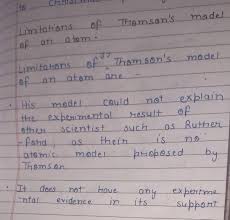 Limitations of Thomson's model
of an atom.
Limitations of Thomson's model
of an atom are
• His model could not explain
the experimental result of
other scientist such as Ruther
-ford, as their is no
atomic model proposed by
Thomson
• It does not have any experime
ntal evidence in its support